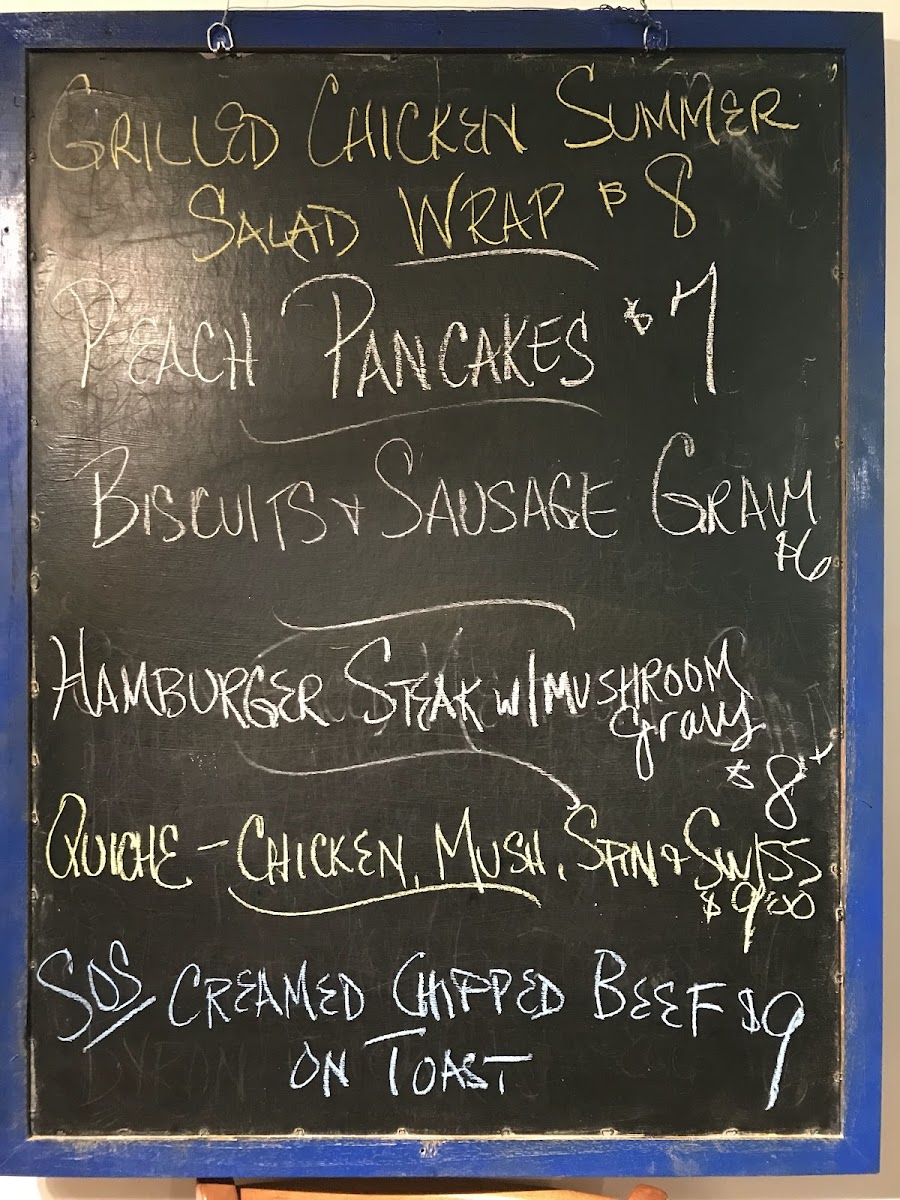 GRILLED CHICKEN SUMMER
SALAD WRAP $8
PEACH PANCAKES $7
BISCUITS & SAUSAGE GRAVY
$6
HAMBURGER STEAK W/MUSHROOM
gravy
$8+
QUICHE - CHICKEN, MUSH, SPIN & SWISS
$9.00
SOS CREAMED CHIPPED BEEF $9
ON TOAST